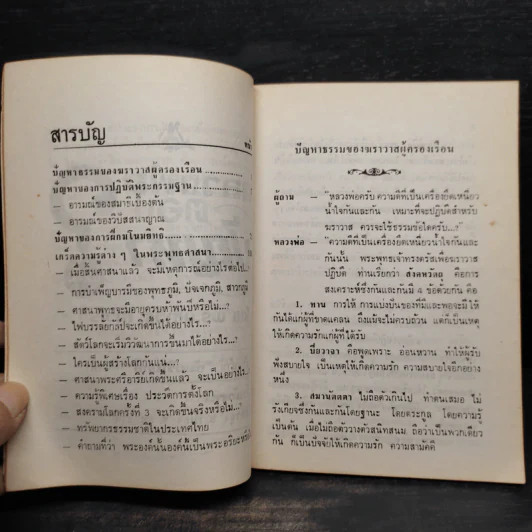 สารบัญ
หน้า
ปัญหาธรรมของฆราวาสผู้ครองเรือน
ปัญหาของการปฏิบัติพระกรรมฐาน
— อารมณ์ของสมาธิเบื้องต้น
— อารมณ์ของวิปัสสนาญาณ
ปัญหาของการฝึกมโนมยิทธิ
เกร็ดความรู้ต่าง ๆ ในพระพุทธศาสนา
— เมื่อสิ้นศาสนาแล้ว จะมีเหตุการณ์อย่างไรต่อไป...?
— การบำเพ็ญบารมีของพุทธภูมิ, ปัจเจกภูมิ, สาวกภูมิ
— ศาสนาพุทธจะมีอายุครบห้าพันปีหรือไม่...?
— ไฟบรรลัยกัลป์จะเกิดขึ้นได้อย่างไร...?
— สัตว์โลกจะเริ่มวิวัฒนาการขึ้นมาได้อย่างไร...?
— ใครเป็นผู้สร้างโลกกันแน่...?
— ศาสนาพระศรีอาริย์เกิดขึ้นแล้ว จะเป็นอย่างไร
— ความรู้พิเศษเรื่อง ประวัติการตั้งโลก
— สงครามโลกครั้งที่ 3 จะเกิดขึ้นจริงหรือไม่...?
— ทรัพยากรธรรมชาติในประเทศไทย
— คำถามที่ว่า พระองค์นั้นองค์นี้เป็นพระอริยะหรือ
ปัญหาธรรมของฆราวาสผู้ครองเรือน
ผู้ถาม — "หลวงพ่อครับ ความดีที่เป็นเครื่องยึดเหนี่ยว
น้ำใจกันและกัน เหมาะที่จะปฏิบัติสำหรับ
ฆราวาส ควรจะใช้ธรรมข้อใดครับ...?"
หลวงพ่อ — "ความดีที่เป็นเครื่องยึดเหนี่ยวน้ำใจกันและ
กันนั้น พระพุทธเจ้าทรงตรัสเพื่อเราปราส
ปฏิบัติ ท่านเรียกว่า สังคหวัตถุ คือการ
สงเคราะห์ซึ่งกันและกันมี 4 ข้อด้วยกัน คือ
1. ทาน การให้ การแบ่งปันของที่มีและพอจะมีให้
กันได้แก่ผู้ที่ขาดแคลน ถึงแม้จะไม่ครบถ้วน แต่ก็เป็นเหตุ
ให้เกิดความรักแก่ผู้ที่ได้รับ
2. ปิยวาจา คือพูดเพราะ อ่อนหวาน ทำให้ผู้รับ
ฟังสบายใจ เป็นเหตุให้เกิดความรัก ความสบายใจอีกอย่าง
หนึ่ง
3. สมานัตตตา ไม่ถือตัวเกินไป ทำตนเสมอ ไม่
รังเกียจซึ่งกันและกันโดยฐานะ โดยตระกูล โดยความรู้
เป็นต้น เมื่อไม่ถือตัววางตัวสนิทสนม ถือว่าเป็นพวกเดียว
กัน ก็เป็นปัจจัยให้เกิดความรัก ความสามัคคี